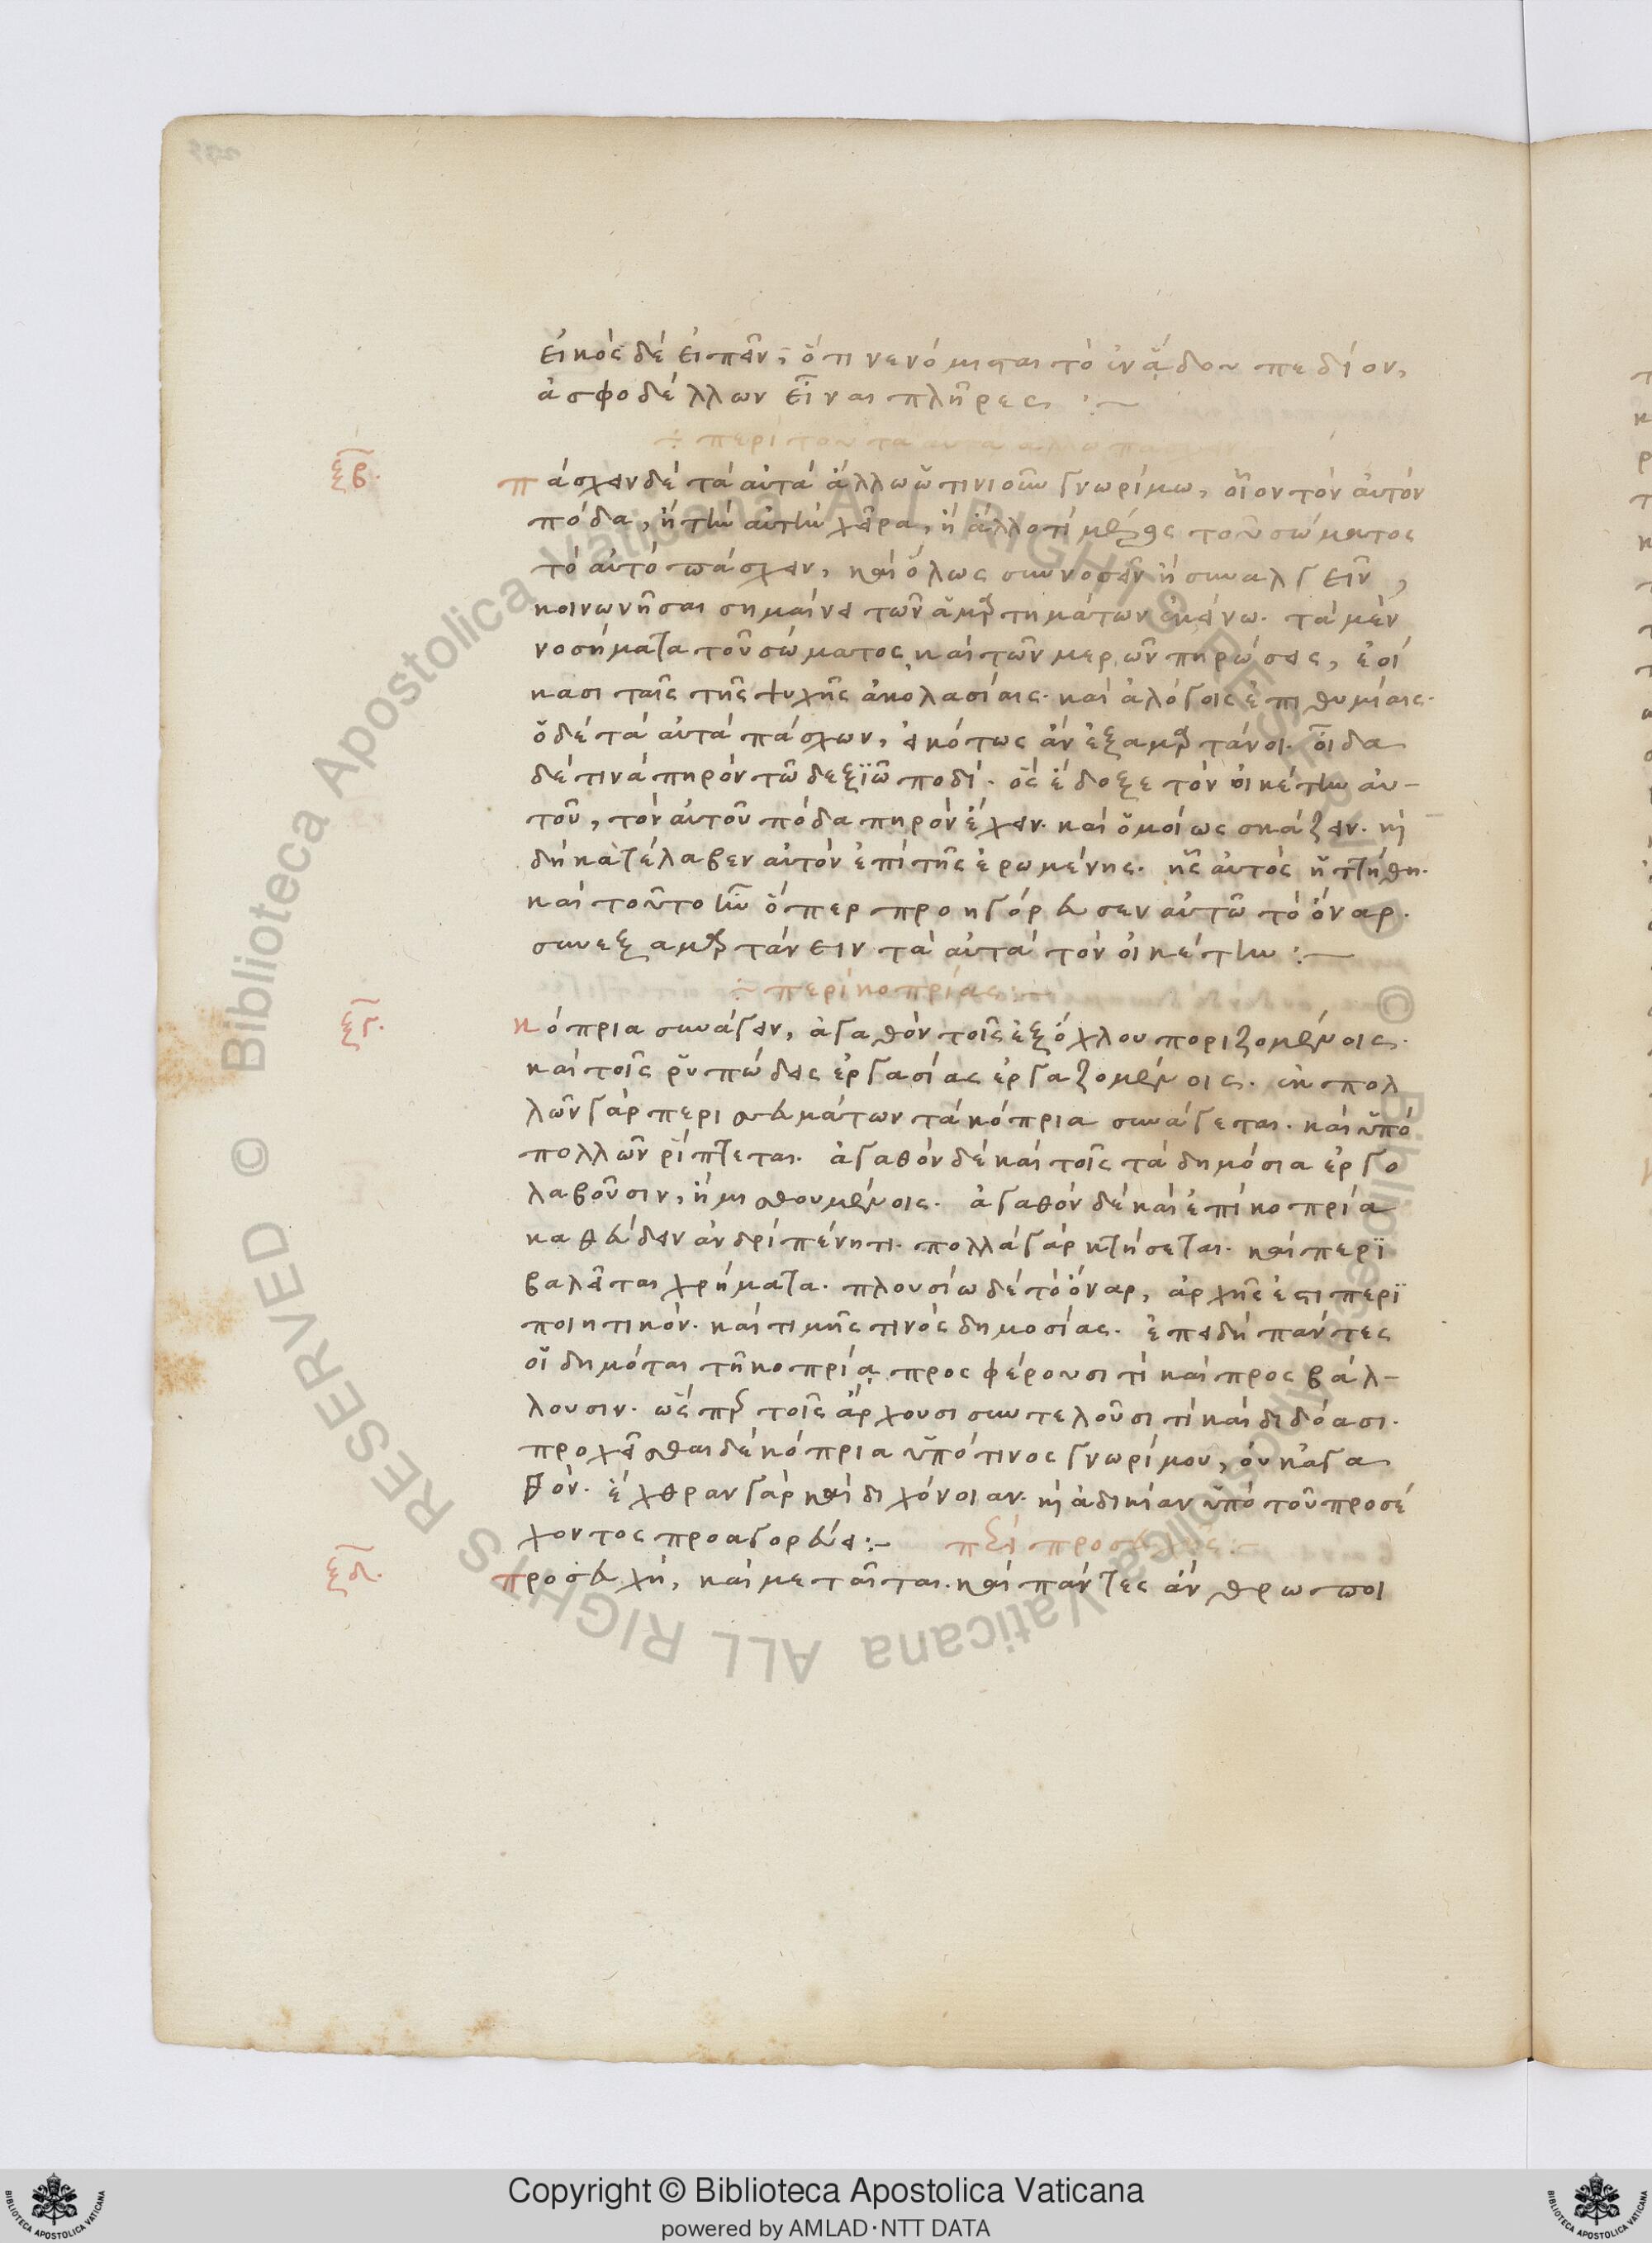 εἰκὸς δὲ εἰπεῖν, ὅτι νενόμισται τὸ ἐν ᾅδου πεδίον,
ἀσφοδέλλων εἶναι πλῆρες :~
÷ περὶ τοῦ τὰ αὐτὰ ἄλλω πάσχειν
ξβ. πάσχειν δὲ τὰ αὐτὰ ἄλλω ᾧτινι οὖν γνωρίμω, οἷον τὸν αὐτὸν
πόδα, ἢ τὴν αὐτὴν χεῖρα, ἢ ἄλλο τι μέρος τοῦ σώματος
τὸ αὐτὸ πάσχειν, καὶ ὅλως συννοσεῖν ἢ συναλγεῖν,
κοινωνῆσαι σημαίνει τῶν ἁμαρτημάτων ἐκείνω. τὰ μὲν
νοσήματα τοῦ σώματος καὶ τῶν μερῶν πηρώσεις, ἐοί
κασι ταῖς τῆς ψυχῆς ἀκολασίαις. καὶ ἀλόγοις ἐπιθυμίαις.
ὁ δὲ τὰ αὐτὰ πάσχων, εἰκότως ἂν ἐξαμαρτάνοι. οἶδα
δέ τινα πηρὸν τῶ δεξϊῶ ποδί. ὃς ἔδοξε τὸν οἰκέτην αὐ-
τοῦ, τὸν αὐτοῦ πόδα πηρὸν ἔχειν. καὶ ὁμοίως σκάζειν. καὶ
δὴ κατέλαβεν αὐτὸν ἐπὶ τῆς ἐρωμένης. ἧς αὐτὸς ἥττήθη.
καὶ τοῦτο ἦν ὅπερ προηγόρευσεν αὐτῶ τὸ ὄναρ.
συνεξαμαρτάνειν τὰ αὐτὰ τὸν οἰκέτην :~
÷ περὶ κοπρίας :~
ξγ. κόπρια συνάγειν, ἀγαθὸν τοῖς ἐξ ὄχλου ποριζομένοις.
καὶ τοῖς ῥυπώδεις ἐργασίας ἐργαζομένοις. ἐκ πολ
λῶν γὰρ περισσευμάτων τὰ κόπρια συνάγεται. καὶ ὑπὸ
πολλῶν ῥίπτεται. ἀγαθὸν δὲ καὶ τοῖς τὰ δημόσια ἐργο
λαβοῦσιν, ἢ μισθουμένοις. ἀγαθὸν δὲ καὶ ἐπὶ κοπρία
καθεύδειν ἀνδρὶ πένητι. πολλὰ γὰρ κτήσεται. καὶ περϊ
βαλεῖται χρήματα. πλουσίω δὲ τὸ ὄναρ, ἀρχῆς ἐστι περϊ
ποιητικόν. καὶ τιμῆς τινὸς δημοσίας. ἐπειδὴ πάντες
οἱ δημόται τῆ κοπρίᾳ προσφέρουσί τι καὶ προσβάλ-
λουσιν. ὥσπερ τοῖς ἄρχουσι συντελοῦσί τι καὶ διδόασι.
προχεῖσθαι δὲ κόπρια ὑπό τινος γνωρίμου, οὐκ ἀγα
θόν. ἔχθραν γὰρ καὶ διχόνοιαν. καὶ ἀδικίαν ὑπὸ τοῦ προσέ
χοντος προαγορεύει :~ περὶ προσευχῆς :~
ξδ. προσευχή, καὶ μεταῖται. καὶ πάντες ἄνθρωποι
Biblioteca Apostolica Vaticana ALL RIGHTS RESERVED ©
Copyright © Biblioteca Apostolica Vaticana
powered by AMLAD·NTT DATA